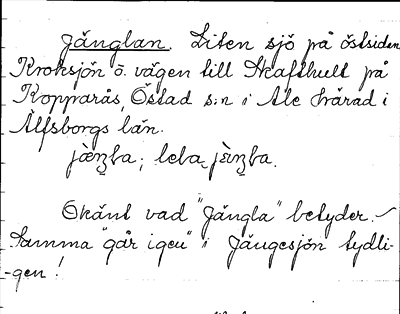 Jänglan. Liten sjö på östsidan
Kroksjön ö. vägen till Skafthult på
Kopparås, Östad s:n i Ale härad i
Älfsborgs län.
Okänt vad "Jängla" betyder. –
Samma "går igen" i Jängesjön tydli-
-gen!